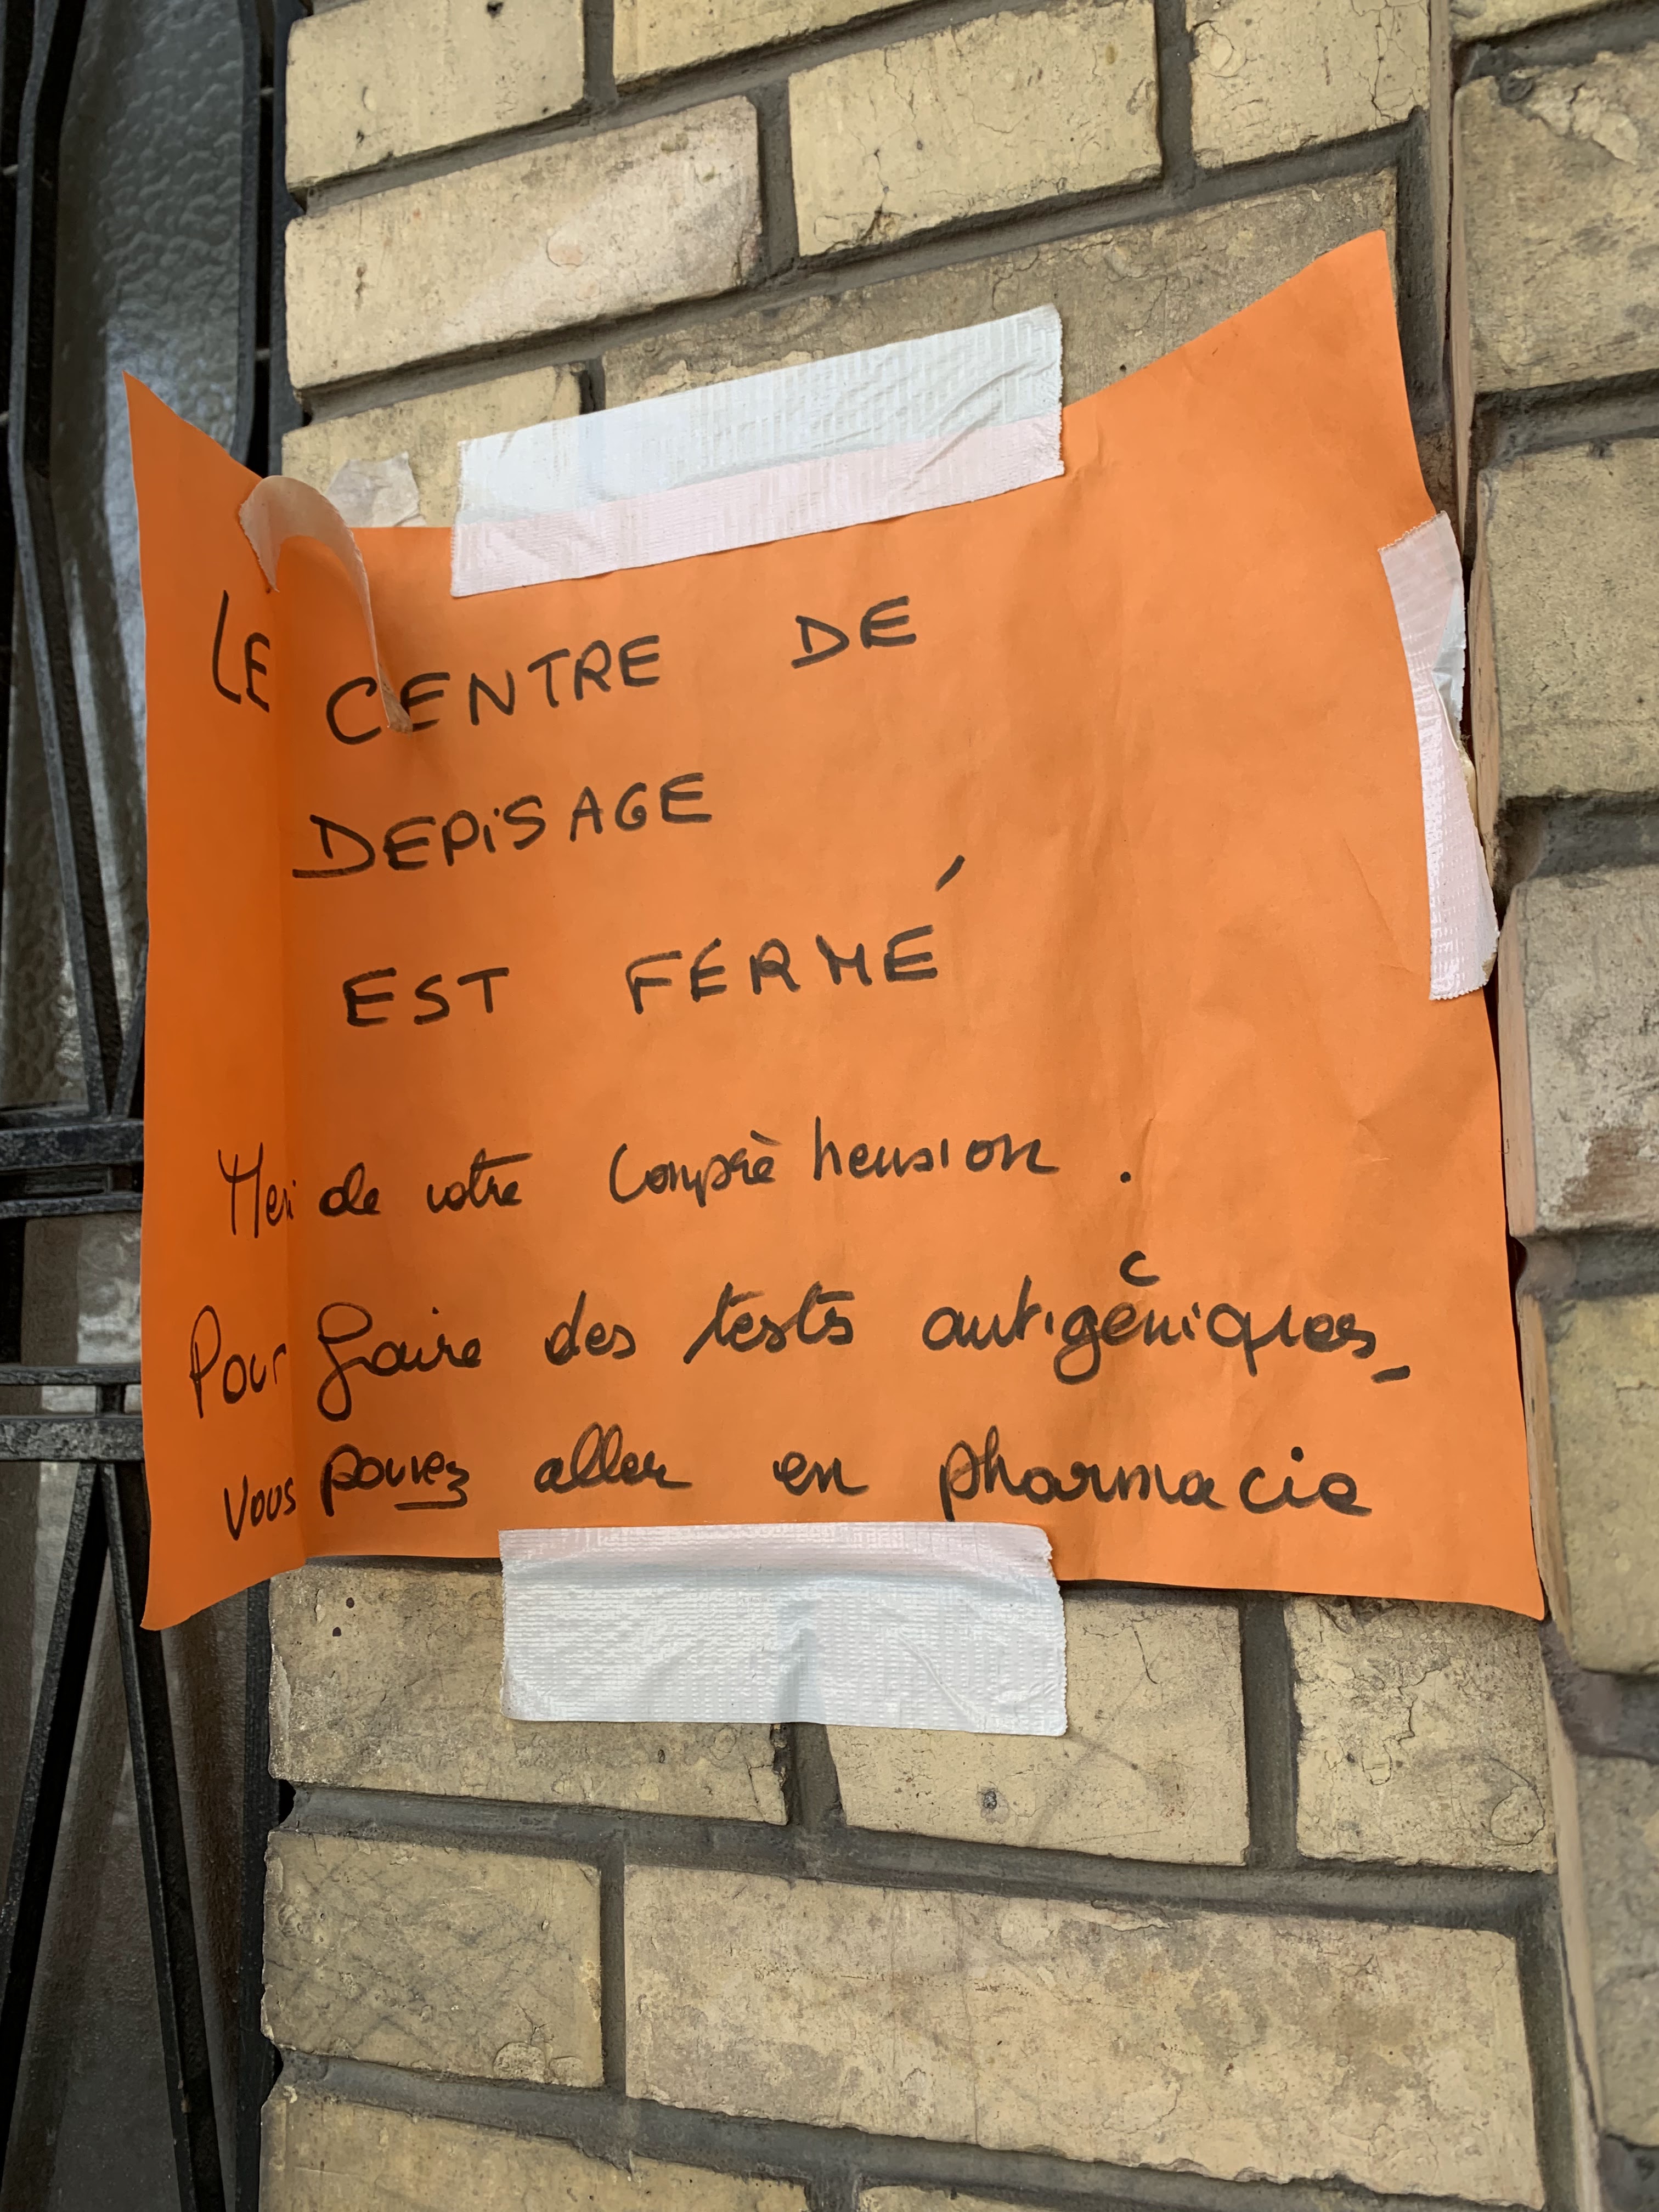 LE CENTRE DE
DEPiSAGE
EST FERMÉ
Merci de votre Comprèhension .
Pour faire des tests antigéniques_
Vous pouvez aller en pharmacie